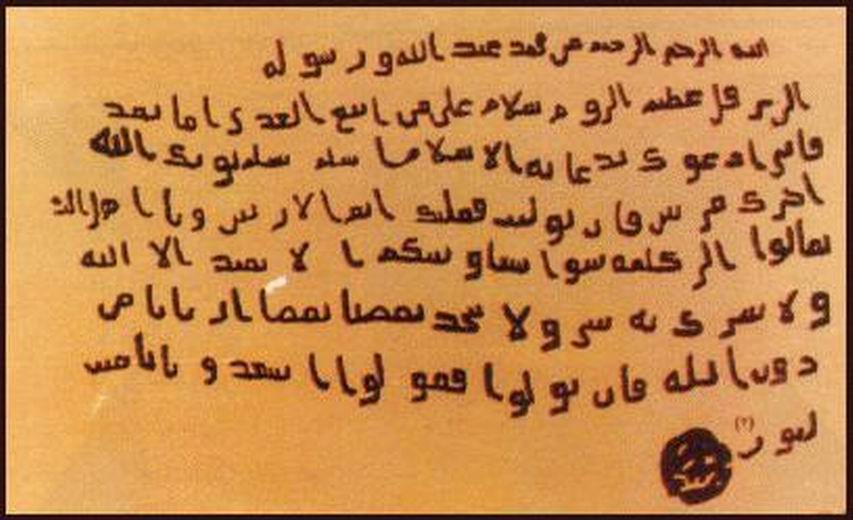 الله الرحمن الرحيم من محمد عبد الله ورسوله
الى هرقل عظيم الروم سلام على من اتبع الهدى اما بعد
فاني ادعوك بدعاية الاسلام اسلم تسلم يوتك الله
اجرك مرتين فان توليت فعليك اثم الاريسين ويا اهل الكتا
تعالوا الى كلمة سوا بيننا وبينكم ا لا نعبد الا الله
ولا نشرك به شي ولا يتخذ بعضنا بعضا اربابا من
دون الله فان تولوا فقولوا اشهدوا بانا مس
لمون (٢)